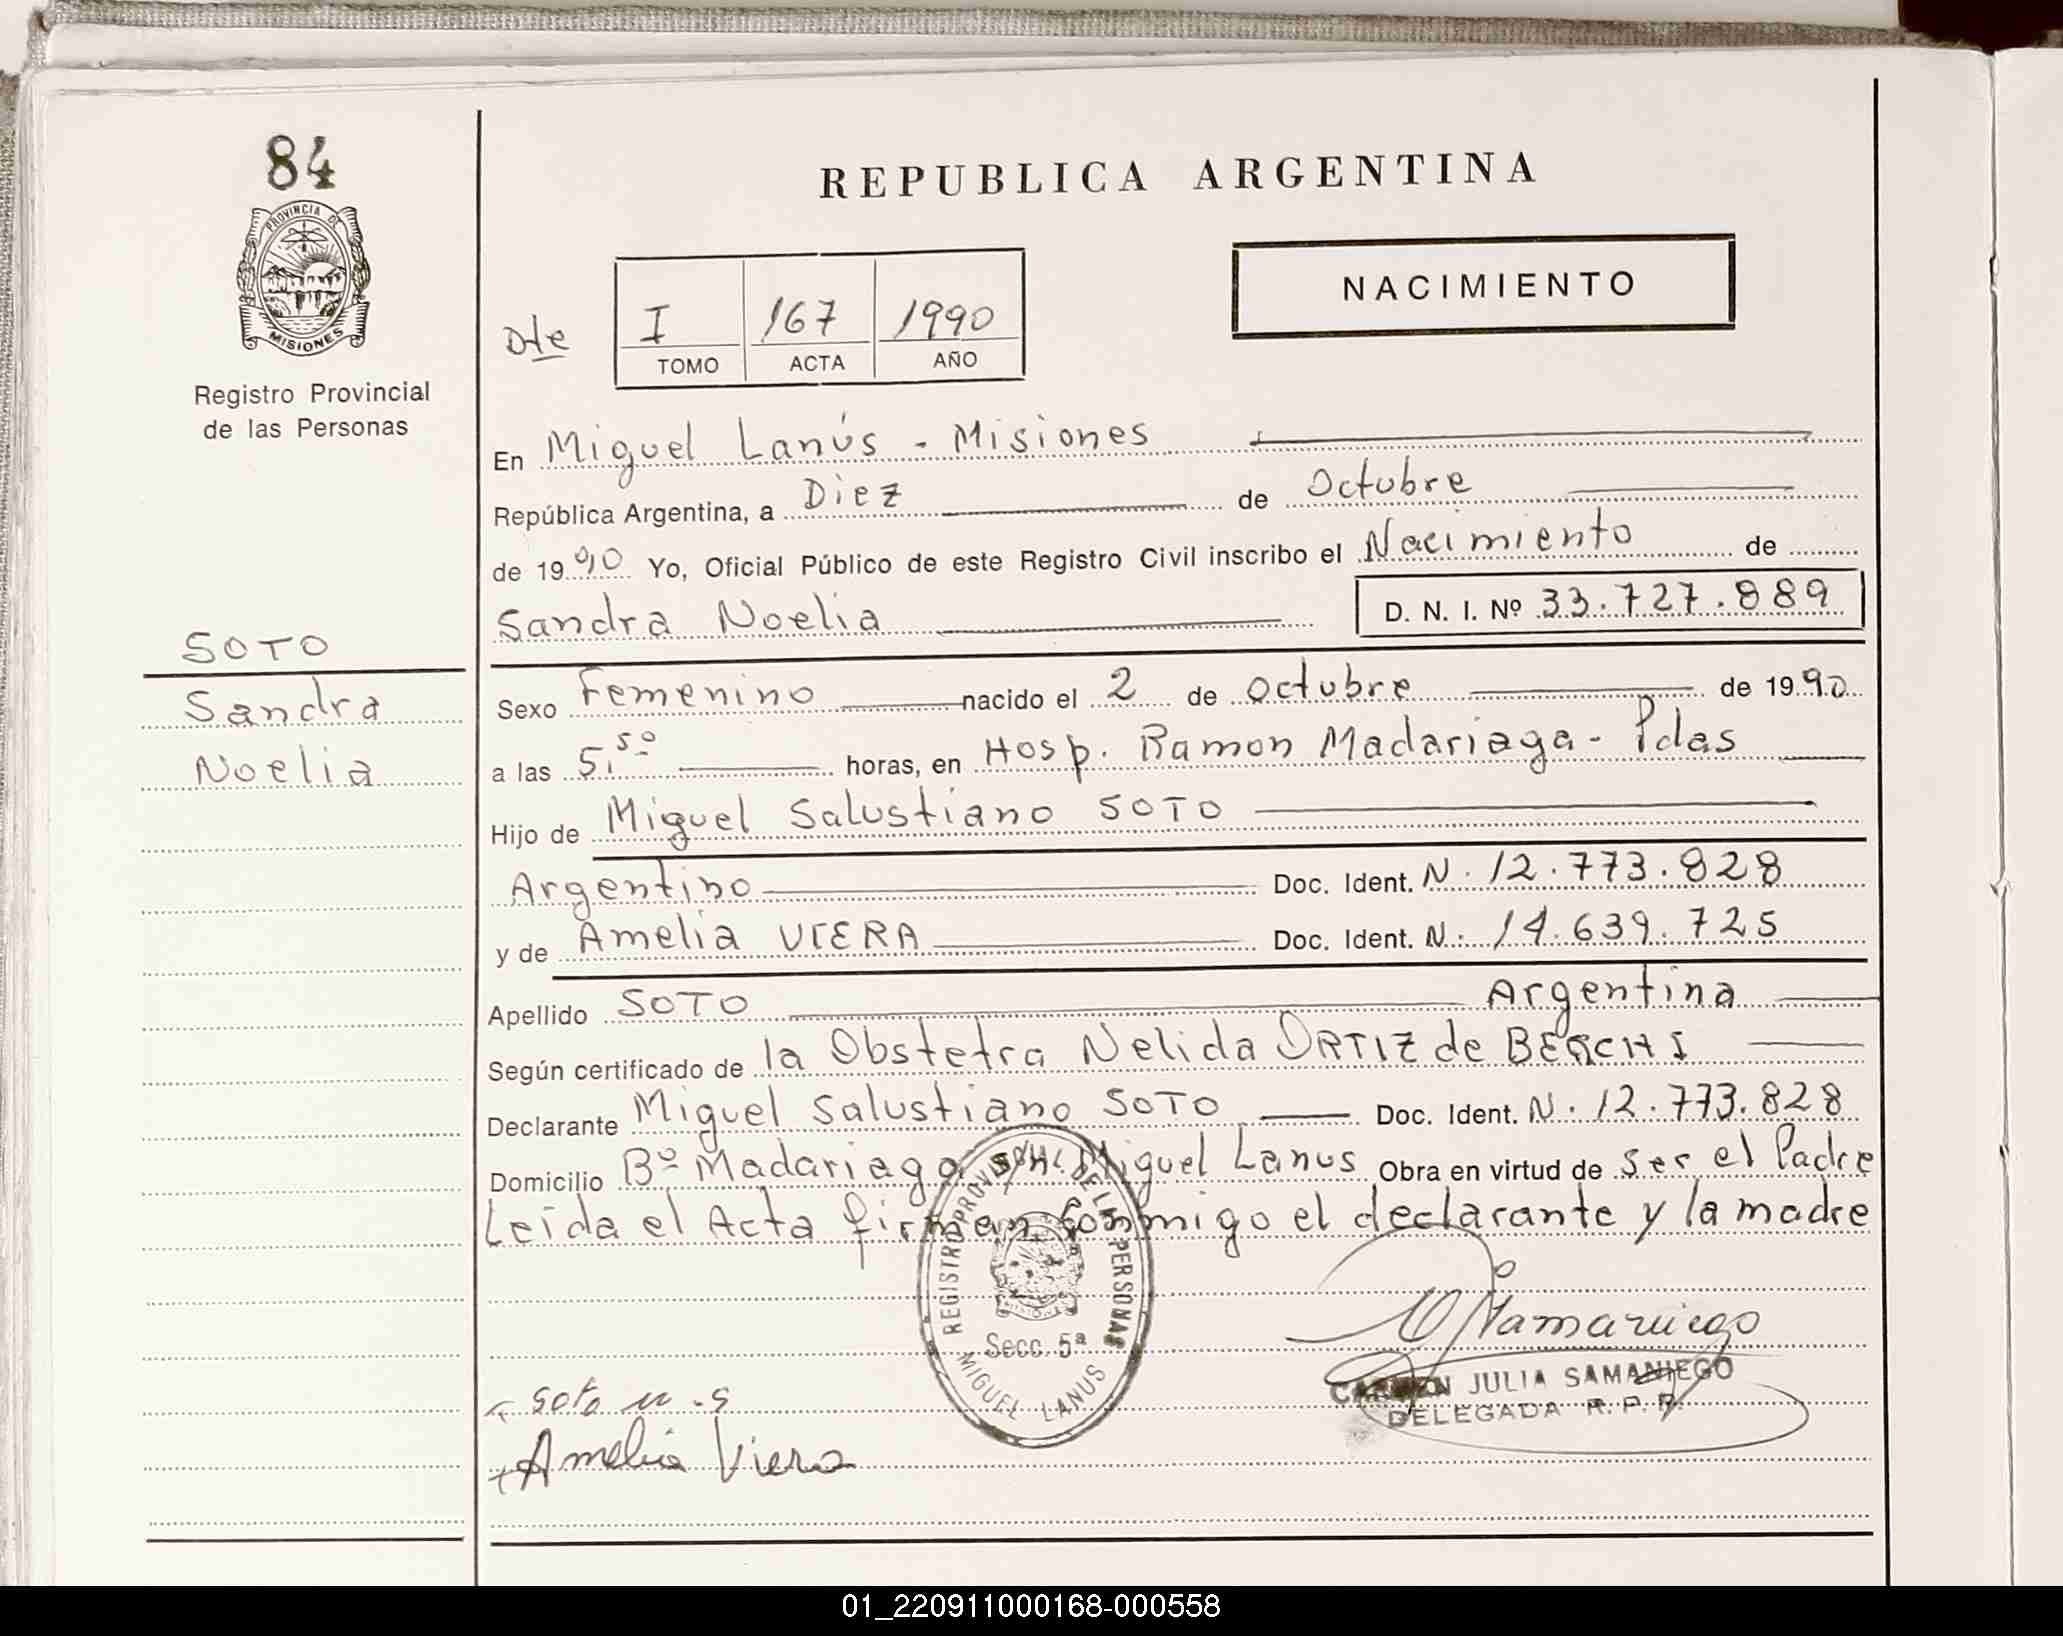 84
PROVINCIA DE
MISIONES
Registro Provincial
de las Personas
REPUBLICA ARGENTINA
NACIMIENTO
Dte
I 167 1990
TOMO ACTA AÑO
En Miguel Lanús - Misiones
República Argentina, a Diez de Octubre
de 1990 Yo, Oficial Público de este Registro Civil inscribo el Nacimiento de
Sandra Noelia D. N. I. Nº 33.727.889
SOTO
Sandra
Noelia
Sexo Femenino nacido el 2 de octubre de 1990
a las 5,50 horas, en Hosp. Ramon Madariaga - Pdas
Hijo de Miguel Salustiano SOTO
Argentino Doc. Ident. N. 12.773.828
y de Amelia VIERA Doc. Ident. N. 14.639.725
Apellido SOTO Argentina
Según certificado de la Obstetra Nelida ORTIZ de
Declarante Miguel Salustiano SOTO Doc. Ident. N. 12.773.828
Domicilio Bº Madariaga s/n. Miguel Lanus Obra en virtud de ser el Padre
Leída el Acta firman conmigo el declarante y la madre
REGISTRO PROVINCIAL DE LAS PERSONAS
Secc. 5ª
MIGUEL LANUS
Samaniego
CARMEN JULIA SAMANIEGO
DELEGADA R. P. P.
Soto M.S
Amelia Viera
01_220911000168-000558